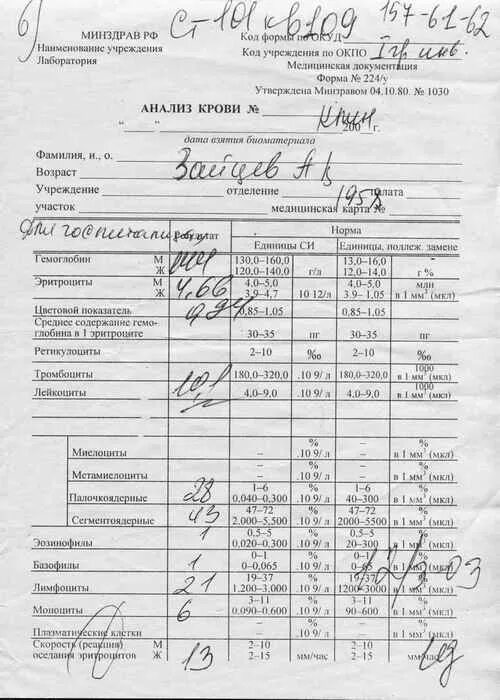 б) Ст 101 кв 209 157-61-62
МИНЗДРАВ РФ Код формы по ОКУД
Наименование учреждения Код учреждения по ОКПО Iгр инв.
Лаборатория Медицинская документация
Форма № 224/у
Утверждена Минздравом 04.10.80. № 1030
АНАЛИЗ КРОВИ №
“ ” 200 г.
дата взятия биоматериала
Фамилия, и., о. Зайцев А В
Возраст
Учреждение отделение палата
участок медицинская карта № 1958
Для госпитализ
Результат Норма
Единицы СИ Единицы, подлеж. замене
Гемоглобин М 130,0–160,0 г/л 13,0–16,0 г %
Ж 120,0–140,0 12,0–14,0
Эритроциты М 4,66 4,0–5,0 10 12/л 4,0–5,0 млн
Ж 3,9–4,7 3,9–1,05 в 1 мм³ (мкл)
Цветовой показатель 0,85–1.05 0,85–1.05
Среднее содержание гемо-
глобина в 1 эритроците 30–35 пг 30–35 пг
Ретикулоциты 2–10 ‰ 2–10 ‰
Тромбоциты 180,0–320,0 .10 9/л 180,0–320,0 1000 в 1 мм³ (мкл)
Лейкоциты 10,1 4.0–9.0 .10 9/л 4.0–9.0 1000 в 1 мм³ (мкл)
Миелоциты – % .10 9/л – % в 1 мм³ (мкл)
Метамиелоциты – % .10 9/л – % в 1 мм³ (мкл)
Палочкоядерные 28 1–6 % 1–6 %
0,040–0,300 .10 9/л 40–300 в 1 мм³ (мкл)
Сегментоядерные 43 47–72 % 47–72 %
2.000–5,500 .10 9/л 2000–5500 в 1 мм³ (мкл)
Эозинофилы 1 0,5–5 % 0,5–5 %
0,020–0,300 .10 9/л 20–300 в 1 мм³ (мкл)
Базофилы 1 0–1 % 0–1 %
0–0,065 .10 9/л 0–65 в 1 мм³ (мкл)
Лимфоциты 21 19–37 % 19–37 %
1.200–3,000 .10 9/л 1200–3000 в 1 мм³ (мкл)
Моноциты 6 3–11 % 3–11 %
0,090–0.600 .10 9/л 90–600 в 1 мм³ (мкл)
Плазматические клетки – % .10 9/л – % в 1 мм³ (мкл)
Скорость (реакция) М 13 2–10 мм/час 2–10 мм/час
оседания эритроцитов Ж 2–15 2–15